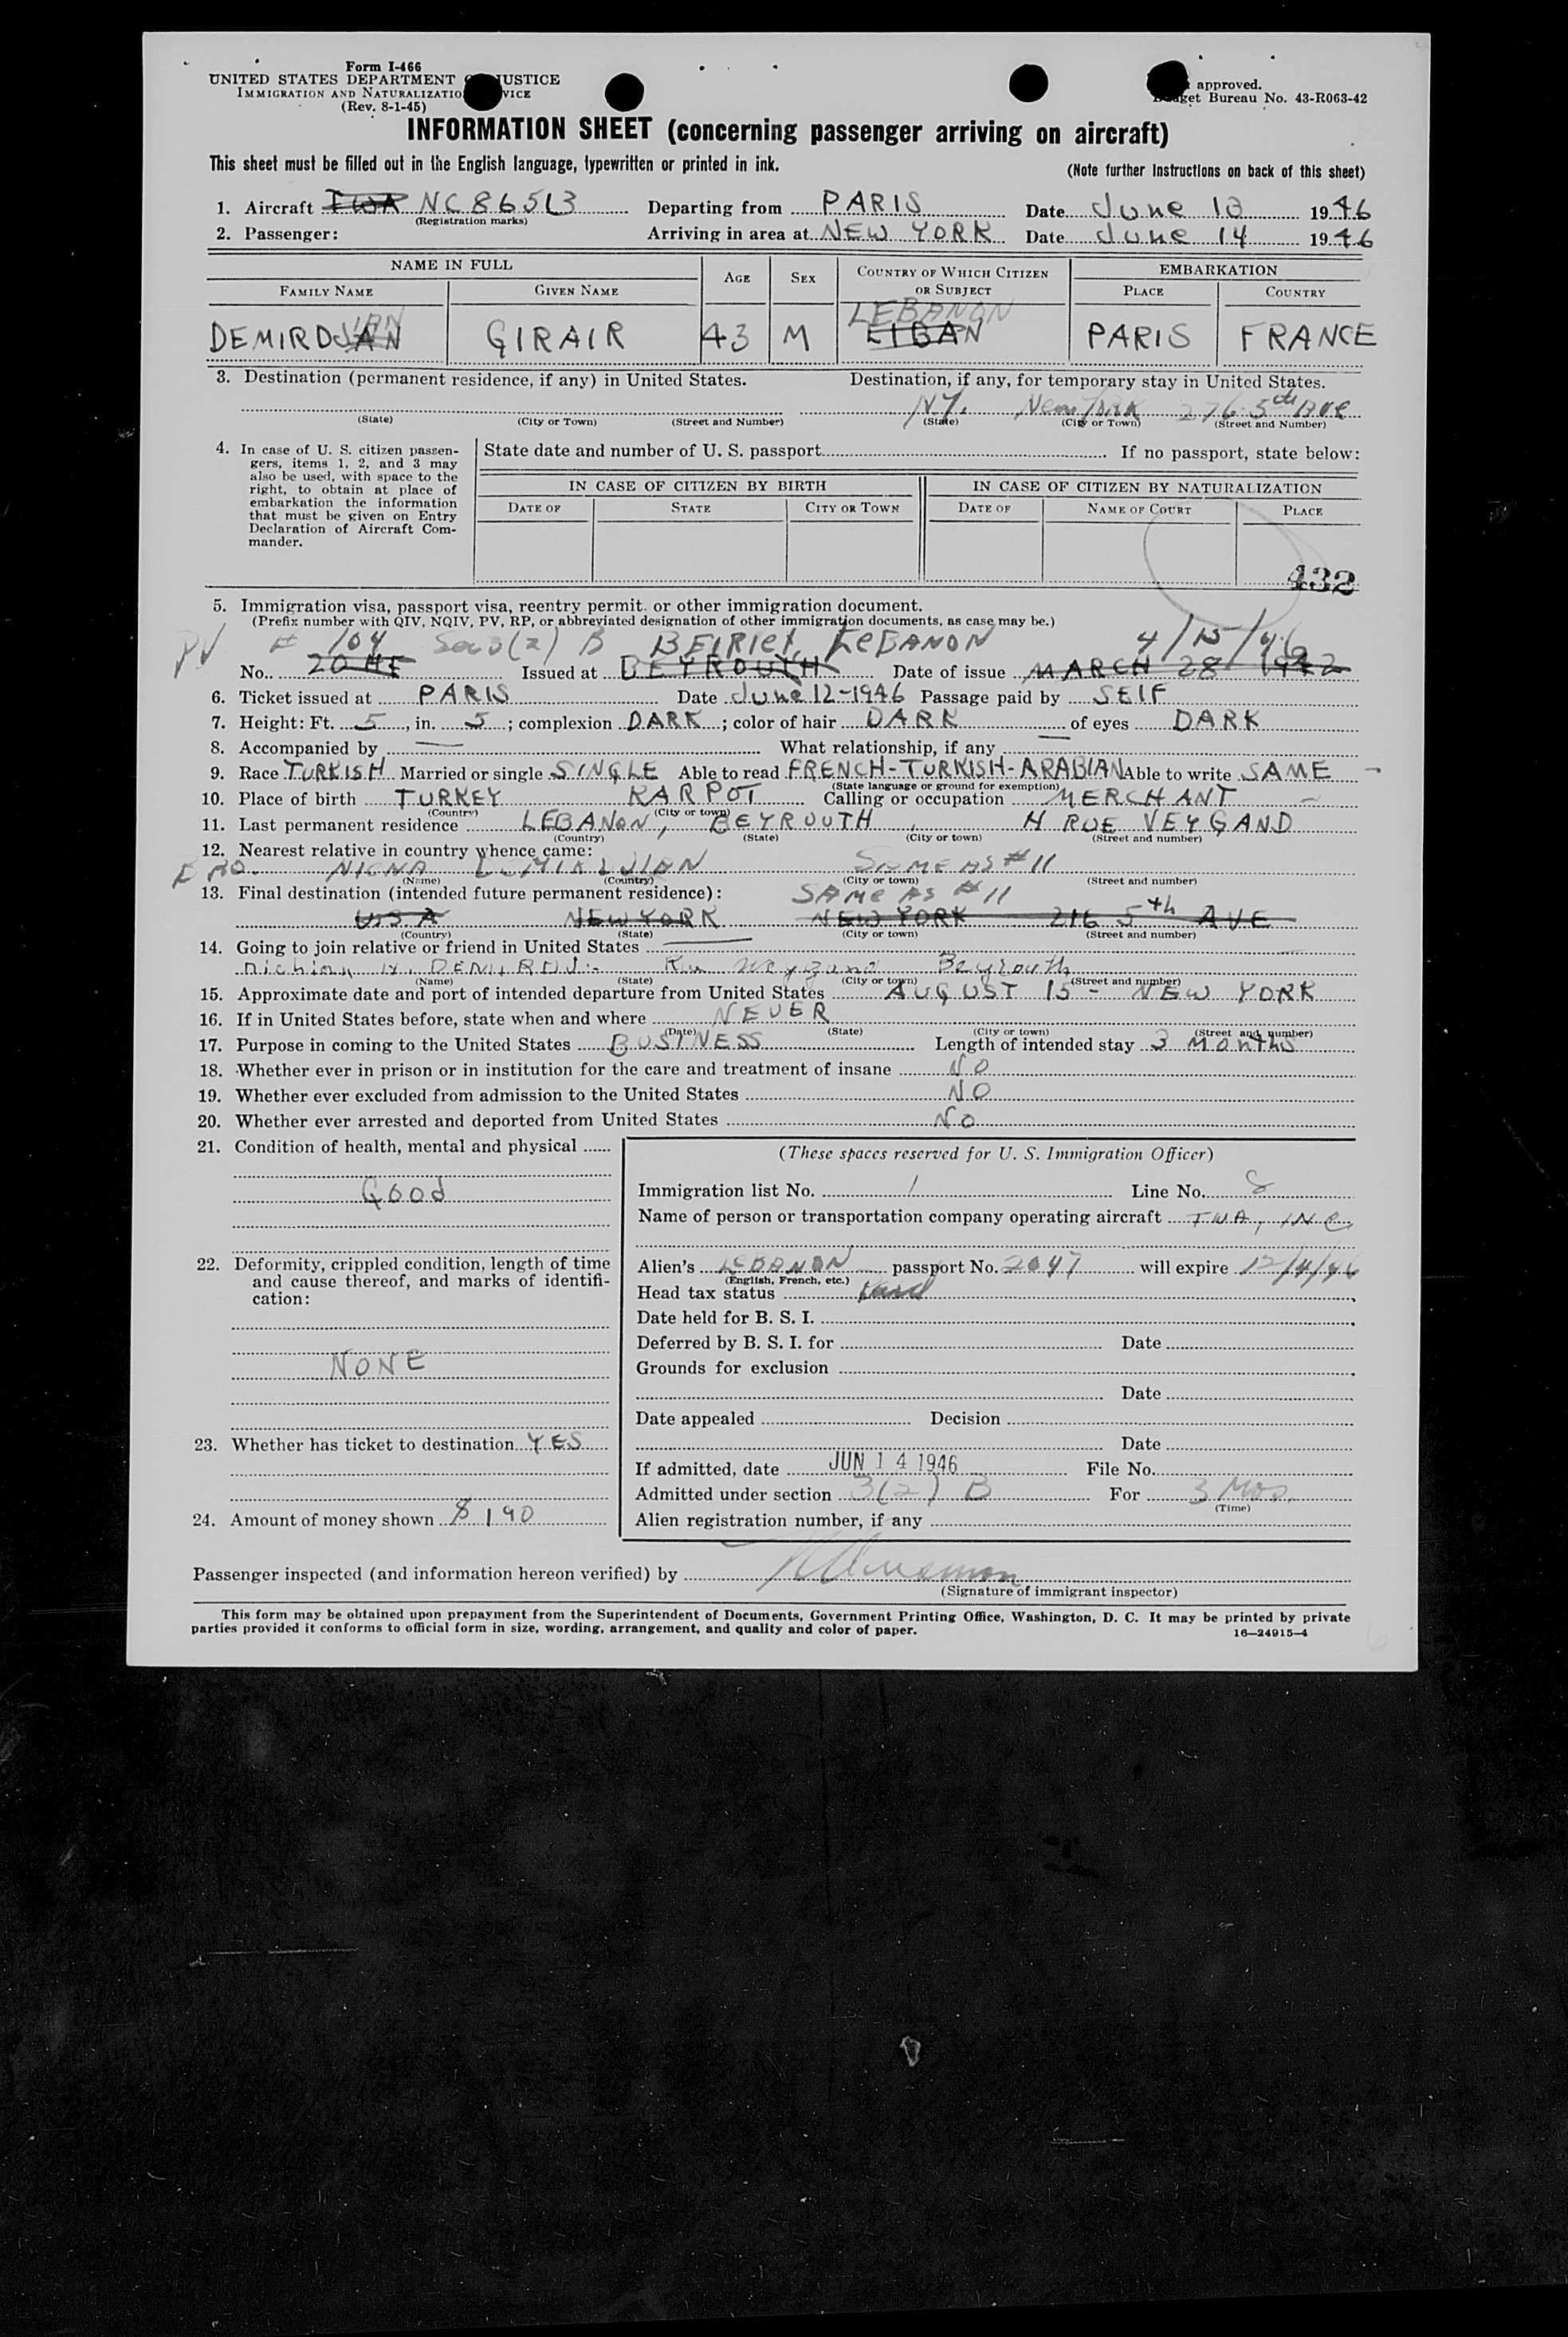 Form I-466
UNITED STATES DEPARTMENT JUSTICE
IMMIGRATION AND NATURALIZATIO VICE
(Rev. 8-1-45)
approved.
get Bureau No. 43-R063-42
INFORMATION SHEET (concerning passenger arriving on aircraft)
This sheet must be filled out in the English language, typewritten or printed in ink.
(Note further instructions on back of this sheet)
1. Aircraft TWA NC86513 Departing from PARIS Date June 13 1946
(Registration marks)
2. Passenger: Arriving in area at NEW YORK Date June 14 1946
NAME IN FULL AGE SEX COUNTRY OF WHICH CITIZEN OR SUBJECT EMBARKATION
FAMILY NAME GIVEN NAME PLACE COUNTRY
LEBANON
DEMIRDJIAN GIRAIR 43 M LIBAN PARIS FRANCE
3. Destination (permanent residence, if any) in United States. Destination, if any, for temporary stay in United States.
NY. New York 276 5th Ave
(State) (City or Town) (Street and Number) (State) (City or Town) (Street and Number)
4. In case of U. S. citizen passengers, items 1, 2, and 3 may also be used, with space to the right, to obtain at place of embarkation the information that must be given on Entry Declaration of Aircraft Commander.
State date and number of U. S. passport If no passport, state below:
IN CASE OF CITIZEN BY BIRTH IN CASE OF CITIZEN BY NATURALIZATION
DATE OF STATE CITY OR TOWN DATE OF NAME OF COURT PLACE
432
5. Immigration visa, passport visa, reentry permit. or other immigration document.
(Prefix number with QIV, NQIV, PV, RP, or abbreviated designation of other immigration documents, as case may be.)
PV # 104 Sec 3(2) B BEIRIET, LEBANON 4/15/46
No. Issued at BEYROUTH Date of issue MARCH 28 1942
6. Ticket issued at PARIS Date June 12-1946 Passage paid by SELF
7. Height: Ft. 5, in. 5; complexion DARK; color of hair DARK of eyes DARK
8. Accompanied by — What relationship, if any —
9. Race TURKISH Married or single SINGLE Able to read FRENCH-TURKISH-ARABIAN Able to write SAME
(State language or ground for exemption)
10. Place of birth TURKEY KARPOT Calling or occupation MERCHANT
(Country) (City or town)
11. Last permanent residence LEBANON, BEYROUTH, H RUE VEYGAND
(Country) (State) (City or town) (Street and number)
12. Nearest relative in country whence came:
SAME AS #11
(Name) (Country) (City or town) (Street and number)
13. Final destination (intended future permanent residence): SAME AS #11
USA NEW YORK NEW YORK 216 5th AVE
(Country) (State) (City or town) (Street and number)
14. Going to join relative or friend in United States —
Beyrouth
(Name) (State) (City or town) (Street and number)
15. Approximate date and port of intended departure from United States AUGUST 15 - NEW YORK
16. If in United States before, state when and where NEVER
(Date) (State) (City or town) (Street and number)
17. Purpose in coming to the United States BUSINESS Length of intended stay 3 Months
18. Whether ever in prison or in institution for the care and treatment of insane NO
19. Whether ever excluded from admission to the United States NO
20. Whether ever arrested and deported from United States No
21. Condition of health, mental and physical
Good
22. Deformity, crippled condition, length of time and cause thereof, and marks of identification:
NONE
23. Whether has ticket to destination YES
24. Amount of money shown $190
(These spaces reserved for U. S. Immigration Officer)
Immigration list No. 1 Line No. 8
Name of person or transportation company operating aircraft TWA, INC
Alien's LEBANON passport No. 2047 will expire 12/4/46
(English, French, etc.)
Head tax status
Date held for B. S. I.
Deferred by B. S. I. for Date
Grounds for exclusion
Date
Date appealed Decision
Date
If admitted, date JUN 14 1946 File No.
Admitted under section 3(2) B For 3 Mos.
(Time)
Alien registration number, if any
Passenger inspected (and information hereon verified) by
(Signature of immigrant inspector)
This form may be obtained upon prepayment from the Superintendent of Documents, Government Printing Office, Washington, D. C. It may be printed by private
parties provided it conforms to official form in size, wording, arrangement, and quality and color of paper.
16—24915-4